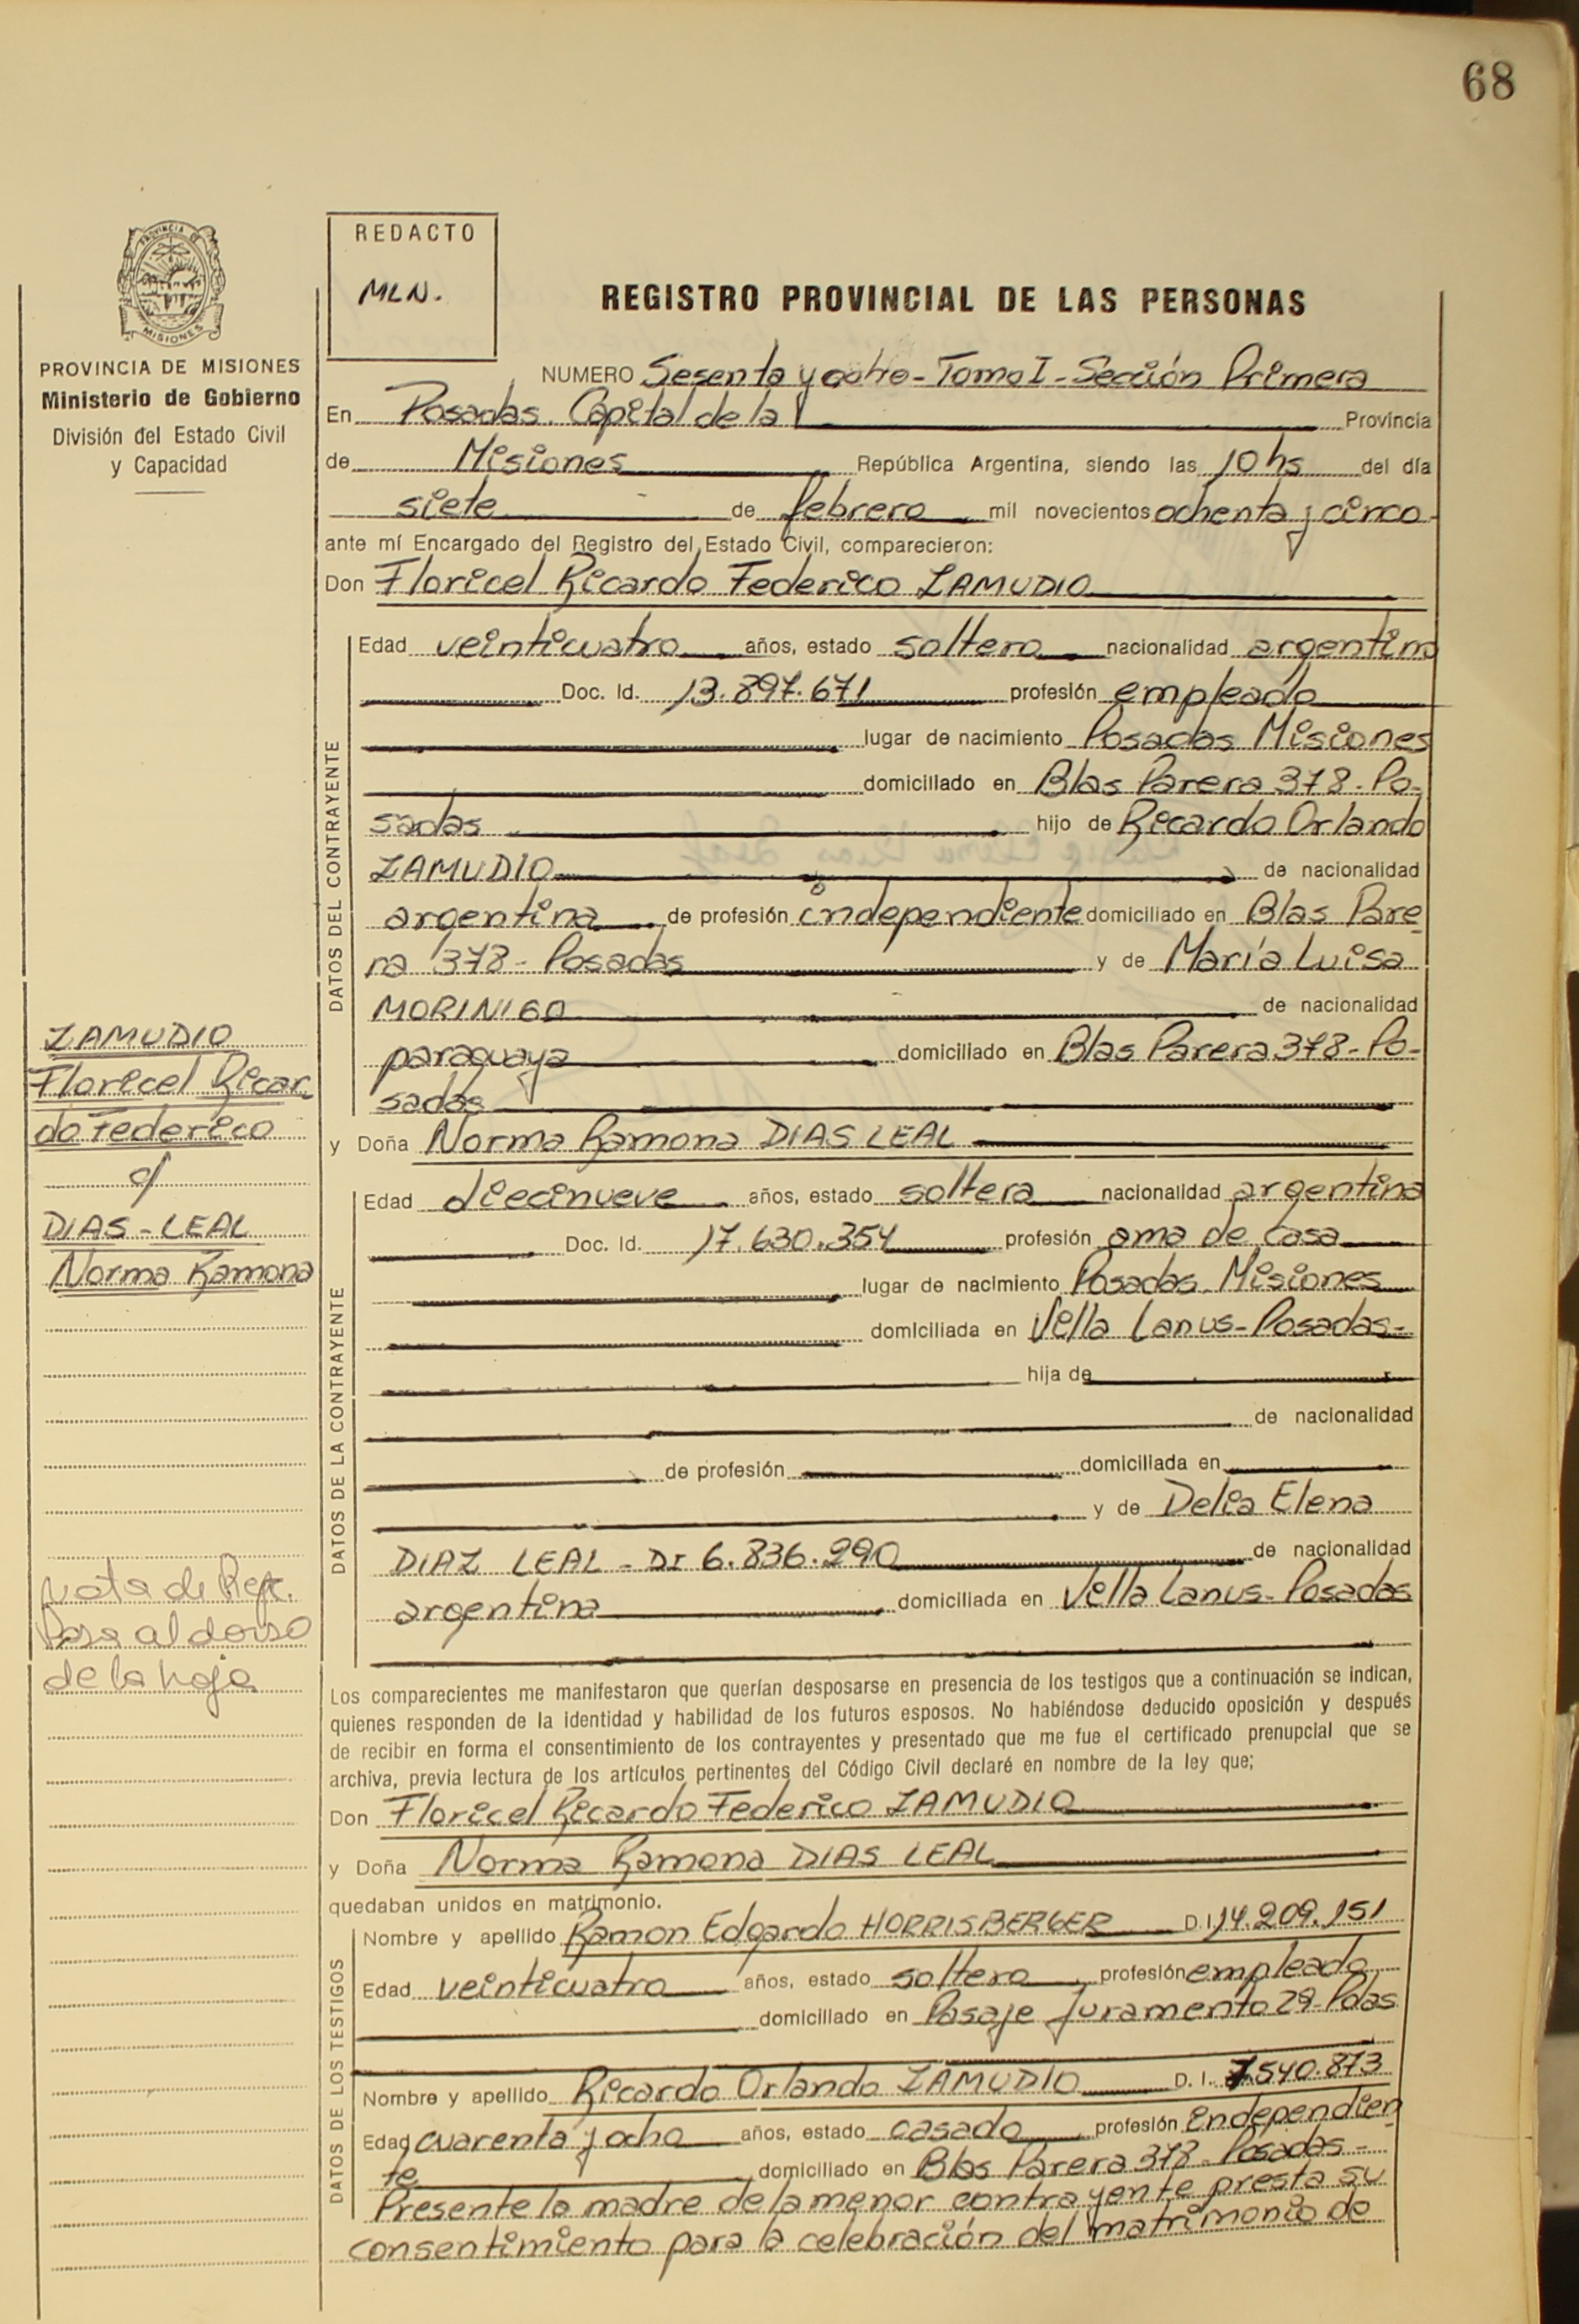 68
PROVINCIA DE
MISIONES
PROVINCIA DE MISIONES
Ministerio de Gobierno
División del Estado Civil
y Capacidad
REDACTO
MLN.
REGISTRO PROVINCIAL DE LAS PERSONAS
NUMERO Sesenta y ocho - Tomo I - Sección Primera
En Posadas. Capital de la Provincia
de Misiones República Argentina, siendo las 10 hs del día
siete de febrero mil novecientos ochenta y cinco-
ante mí Encargado del Registro del Estado Civil, comparecieron:
Don Floricel Ricardo Federico ZAMUDIO
DATOS DEL CONTRAYENTE
Edad veinticuatro años, estado soltero nacionalidad argentino
Doc. Id. 13.897.671 profesión empleado
lugar de nacimiento Posadas Misiones
domiciliado en Blas Parera 378 - Po-
sadas hijo de Ricardo Orlando
ZAMUDIO de nacionalidad
argentina de profesión independiente domiciliado en Blas Pare
ra 378 - Posadas y de María Luisa
MORINIGO de nacionalidad
paraguaya domiciliado en Blas Parera 378 - Po-
sadas
ZAMUDIO
Floricel Ricar
do Federico
c/
DIAS - LEAL
Norma Ramona
y Doña Norma Ramona DIAS LEAL
DATOS DE LA CONTRAYENTE
Edad diecinueve años, estado soltera nacionalidad argentina
Doc. Id. 17.630.354 profesión ama de casa
lugar de nacimiento Posadas Misiones
domiciliada en Villa Lanus - Posadas -
hija de
de nacionalidad
de profesión domiciliada en
y de Delia Elena
DIAZ LEAL - DI 6.836.290 de nacionalidad
argentina domiciliada en Villa Lanus - Posadas
nota de Ref.
Pasa al dorso
de la hoja
Los comparecientes me manifestaron que querían desposarse en presencia de los testigos que a continuación se indican,
quienes responden de la identidad y habilidad de los futuros esposos. No habiéndose deducido oposición y después
de recibir en forma el consentimiento de los contrayentes y presentado que me fue el certificado prenupcial que se
archiva, previa lectura de los artículos pertinentes del Código Civil declaré en nombre de la ley que;
Don Floricel Ricardo Federico ZAMUDIO
y Doña Norma Ramona DIAS LEAL
quedaban unidos en matrimonio.
DATOS DE LOS TESTIGOS
Nombre y apellido Ramon Edgardo HORRISBERGER D.I. 14.209.151
Edad veinticuatro años, estado soltero profesión empleado
domiciliado en Pasaje Juramento 29 - Pdas
Nombre y apellido Ricardo Orlando ZAMUDIO D. I. 7.540.873
Edad cuarenta y ocho años, estado casado profesión independien
te domiciliado en Blas Parera 378 - Posadas -
Presente la madre de la menor contrayente presta su
consentimiento para la celebración del matrimonio de